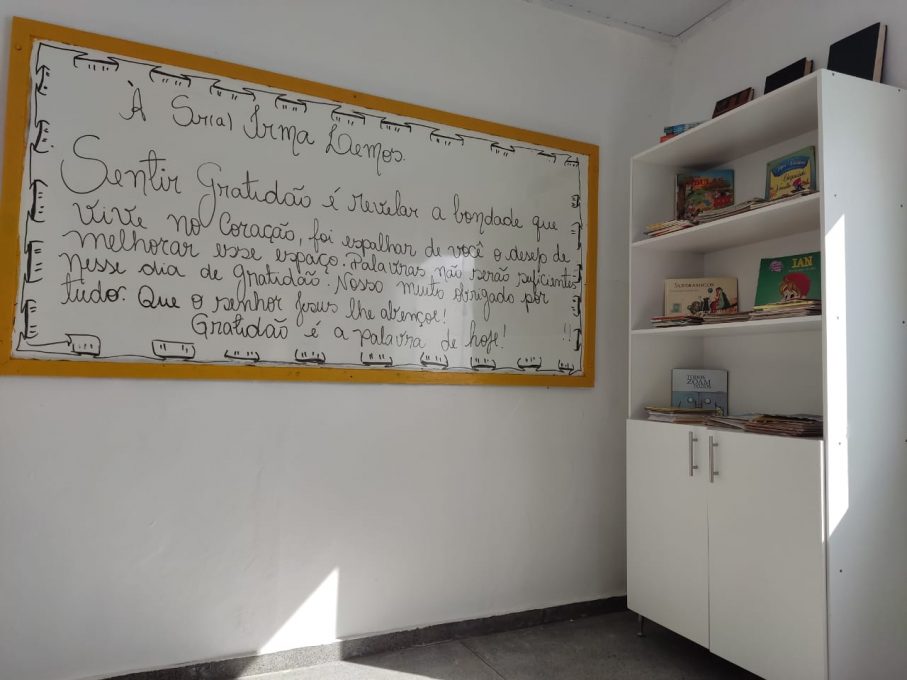 À Social Irmã Lemos.
Sentir Gratidão é revelar a bondade que
vive no Coração, foi espalhar de você o desejo de
melhorar esse espaço. Palavras não serão suficientes
nesse dia de gratidão. Nosso muito obrigado por
tudo. Que o senhor Jesus lhe abençoe!
Gratidão é a palavra de hoje! !!
IAN
TODOS
ZOAM
TODOS